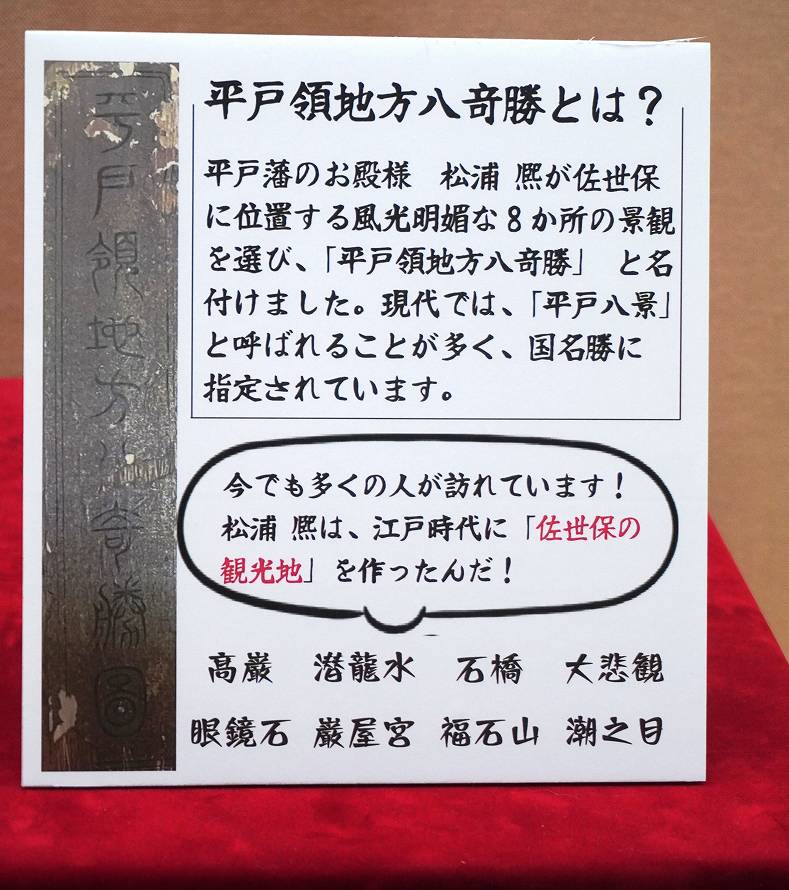 平戸領地方八竒勝圖
平戸領地方八竒勝とは？
平戸藩のお殿様　松浦 熈が佐世保
に位置する風光明媚な8か所の景観
を選び、「平戸領地方八竒勝」　と名
付けました。現代では、「平戸八景」
と呼ばれることが多く、国名勝に
指定されています。
今でも多くの人が訪れています！
松浦 熈は、江戸時代に「佐世保の
観光地」を作ったんだ！
高巌　潜龍水　石橋　大悲観
眼鏡石　巌屋宮　福石山　潮之目